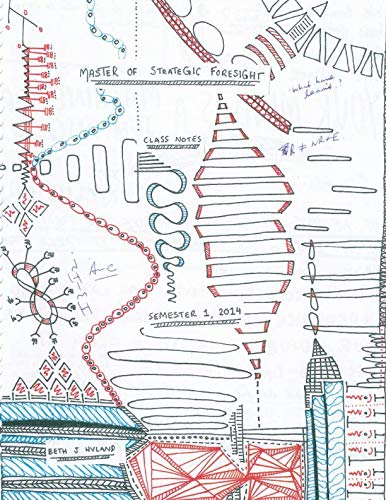 MASTER OF STRATEGIC FORESIGHT
CLASS NOTES
SEMESTER 1, 2014
BETH J HYLAND